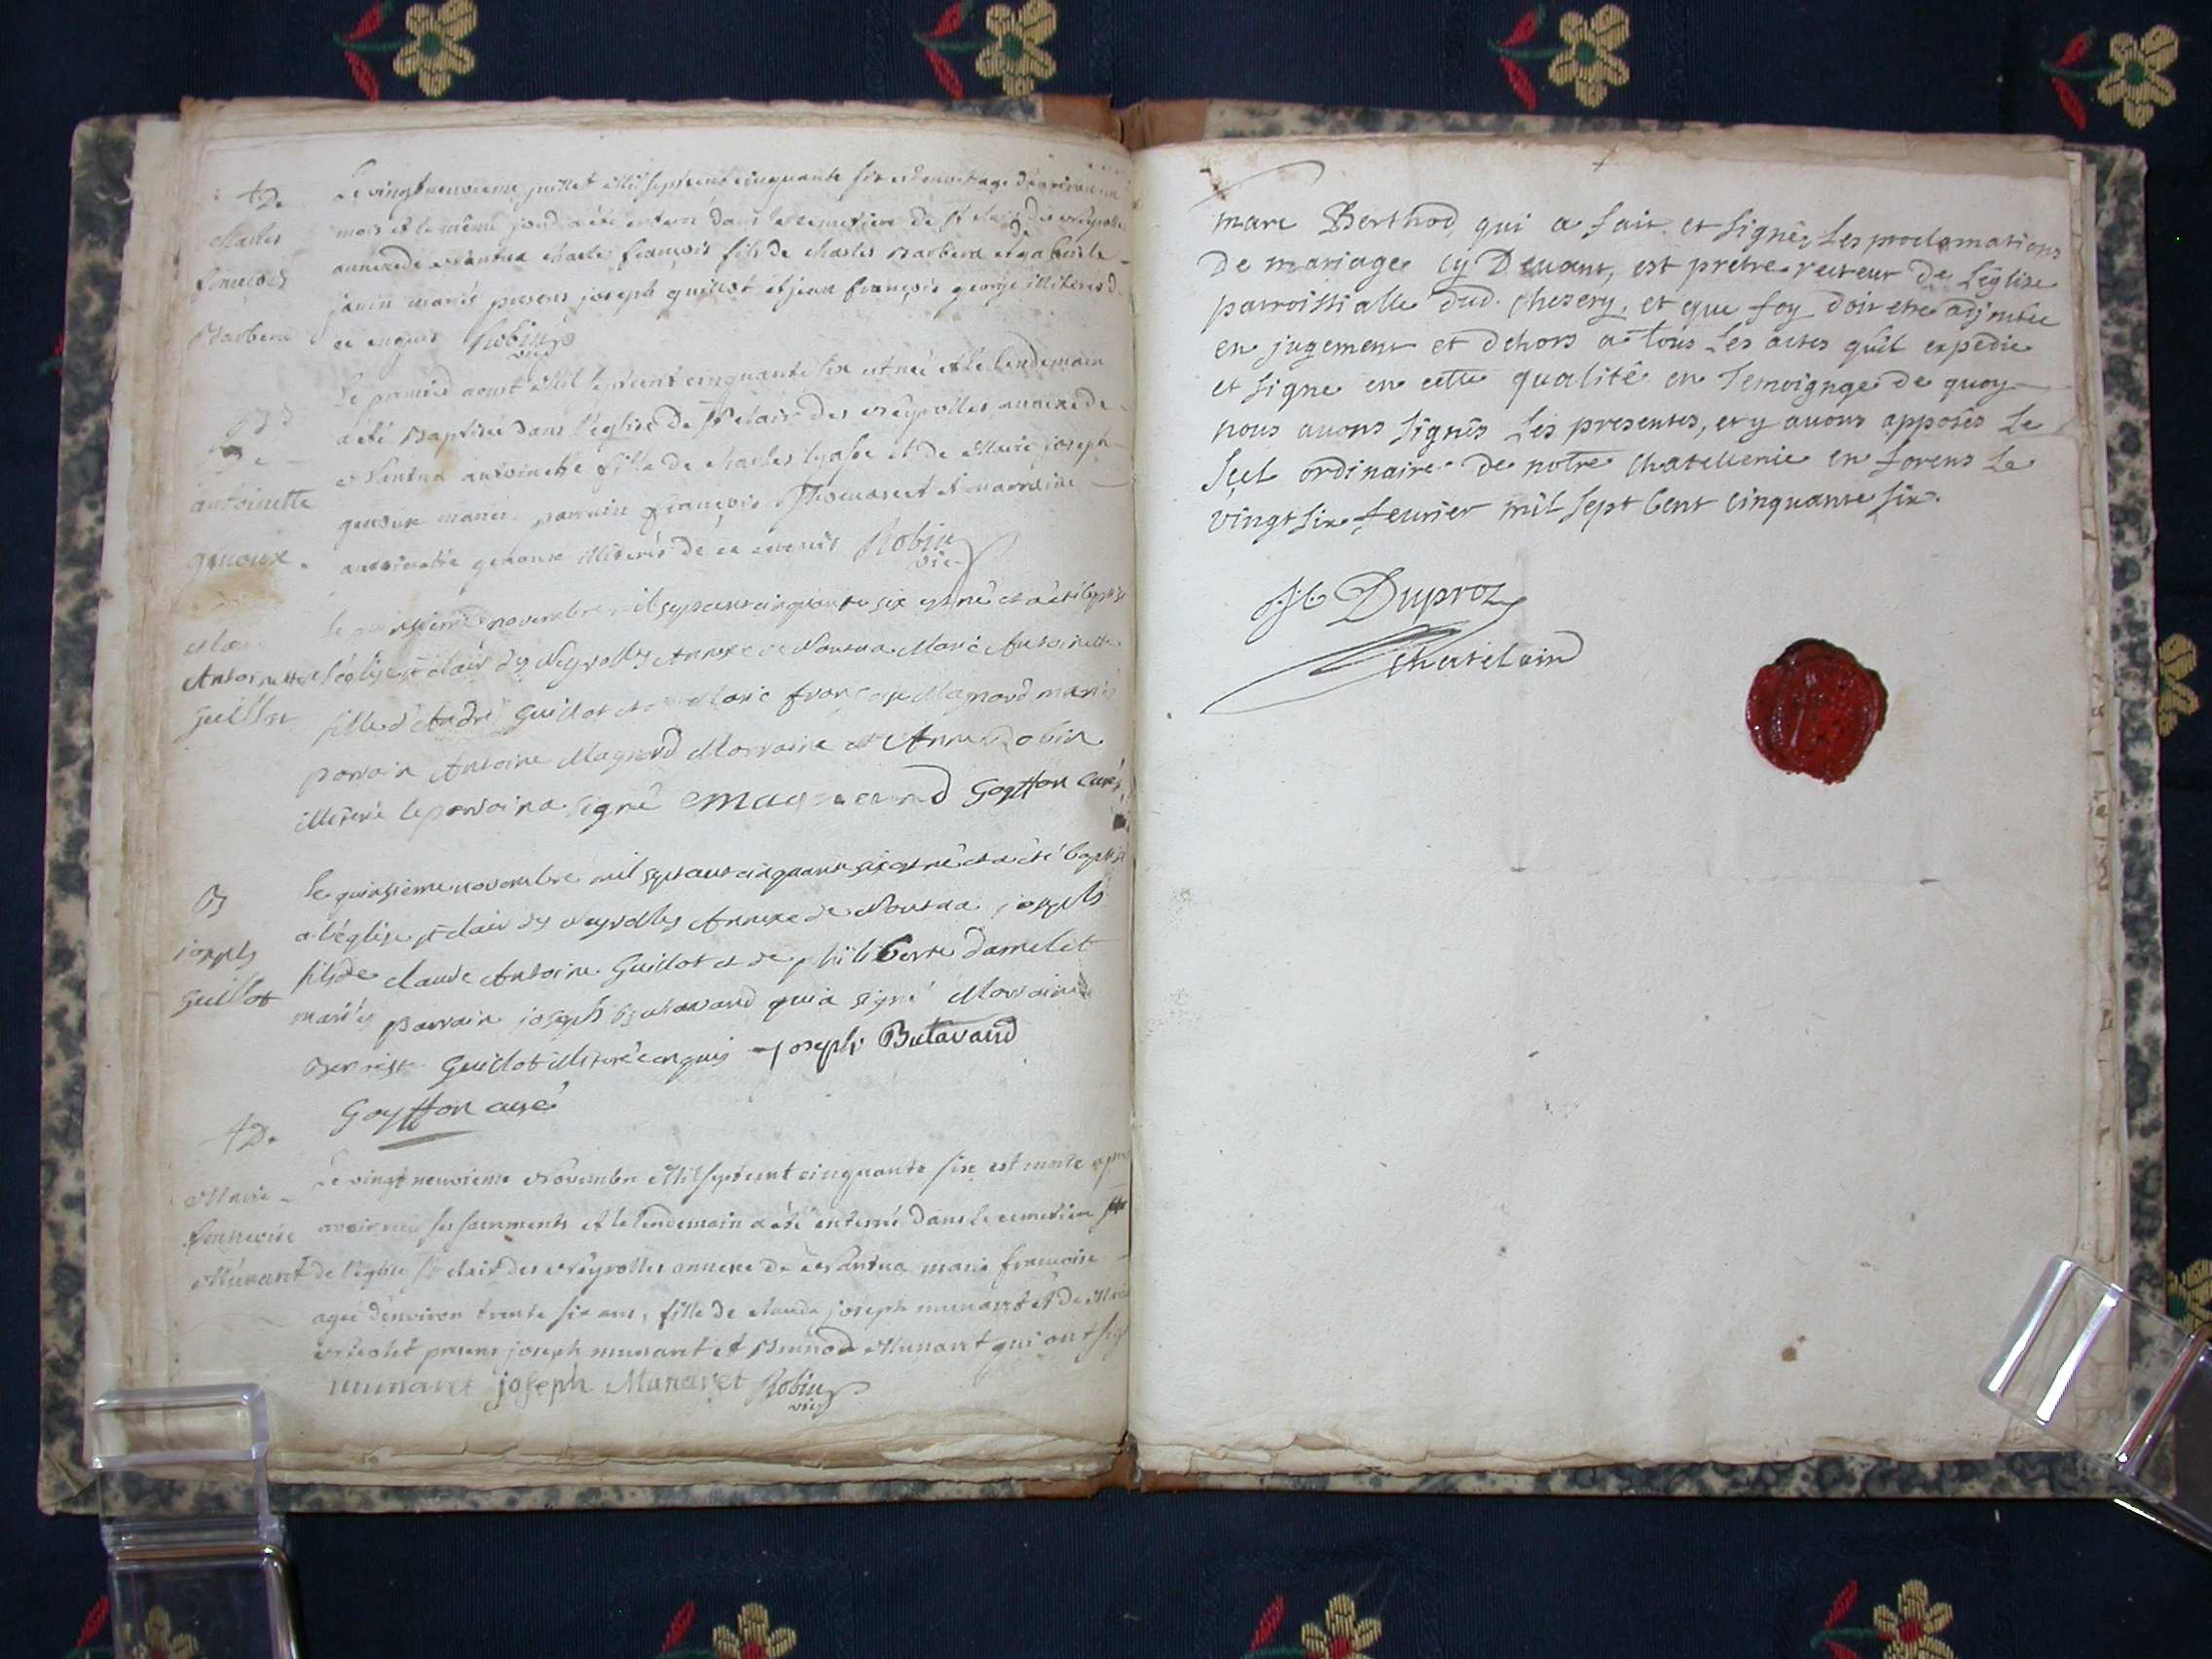 Le vingtneuvieme juillet Mil septcent cinquante six est mort agé d'environ un
mois et le même jour a été enterré dans le cemetiere de St Clair des Neyrolles
annexe de Nantua Charles françois fils de Charles Barbera et de gabrielle
janin mariés presens joseph guillot et jean françois george illiterés de
ce enquis Robin
vic
+ D.
Charles
françois
Barbera
Le premier aout Mil septcent cinquante six est née et le lendemain
a été Baptisée dans l'église de St Clair des Neyrolles annexe de
Nantua antoinette fille de Charles et de Marie joseph
genoux mariés parrain françois et marraine
antoinette genoux illiterés de ce enquis Robin
vic
antoinette
genoux.
Le novembre mil septcent cinquante six est née et a été baptisé
l'église St Clair des Neyrolles Annexe de Nantua Marie Antoinette
fille d'André Guillot et de Marie françoise Magnard mariés
parrain Antoine Magnard Marraine Anne Robin
illiteré le parrain a signé Goyffon curé
Antoinette
Guillot
Le quinsieme novembre mil septcent cinquante six est né et a été baptisé
a l'église St Clair des Neyrolles Annexe de Nantua joseph
fils de Claude Antoine Guillot et de philiberte Damelet
mariés parrain joseph Butavand qui a signé Marraine
Guillot illiteré enquis joseph Butavand
Goyffon curé
B
joseph
Guillot
+ D.
Le vingt neuvieme Novembre Mil septcent cinquante six est morte après
avoir reçu ses sacrements et le lendemain a été enterrée dans le cemetiere
de l'église St Clair des Neyrolles annexe de Nantua marie françoise
agée d'environ trente six ans, fille de claude joseph munaret et de Marie
presens joseph munaret et Munaret qui ont signé
munaret joseph Munaret Robin
vic
Marie
françoise
Munaret
marc Berthod, qui a fait et signé, Les proclamations
De mariage cy Devant, est pretre recteur de Léglise
parroissialle dud. chesery, et que foy doit etre adjoutée
en jugement et dehors a tous Les actes quil expedie
et signe en cette qualité en Temoignage de quoy
nous avons signés Les presentes, et y avons apposés Le
scel ordinaire de notre chatellenie en forens Le
vingt six fevrier mil sept Cent Cinquante six.
Duproz
chatelain